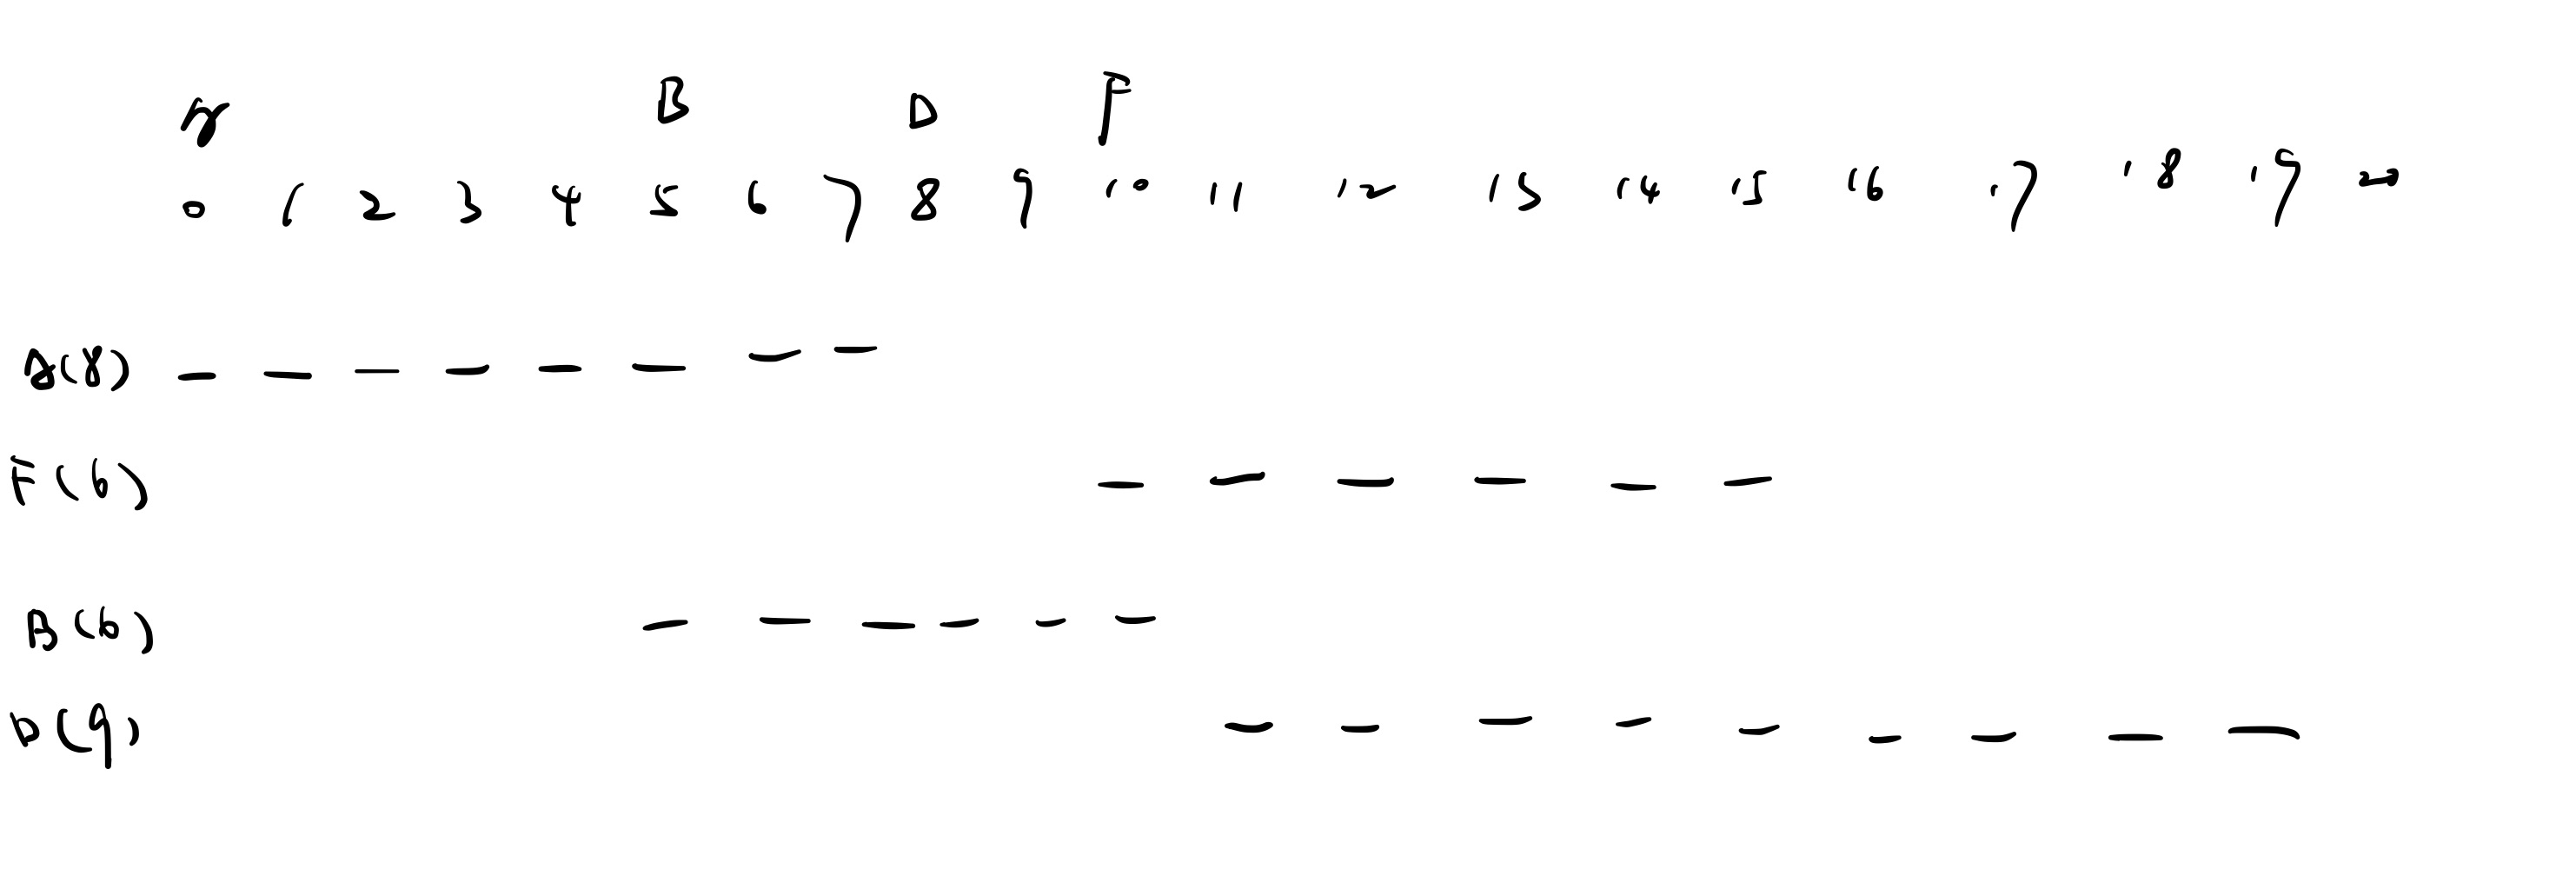 B D F
0 1 2 3 4 5 6 7 8 9 10 11 12 13 14 15 16 17 18 19 20
A(8) – – – – – – – –
F(6) – – – – – –
B(6) – – – – – –
D(9) – – – – – – – – –